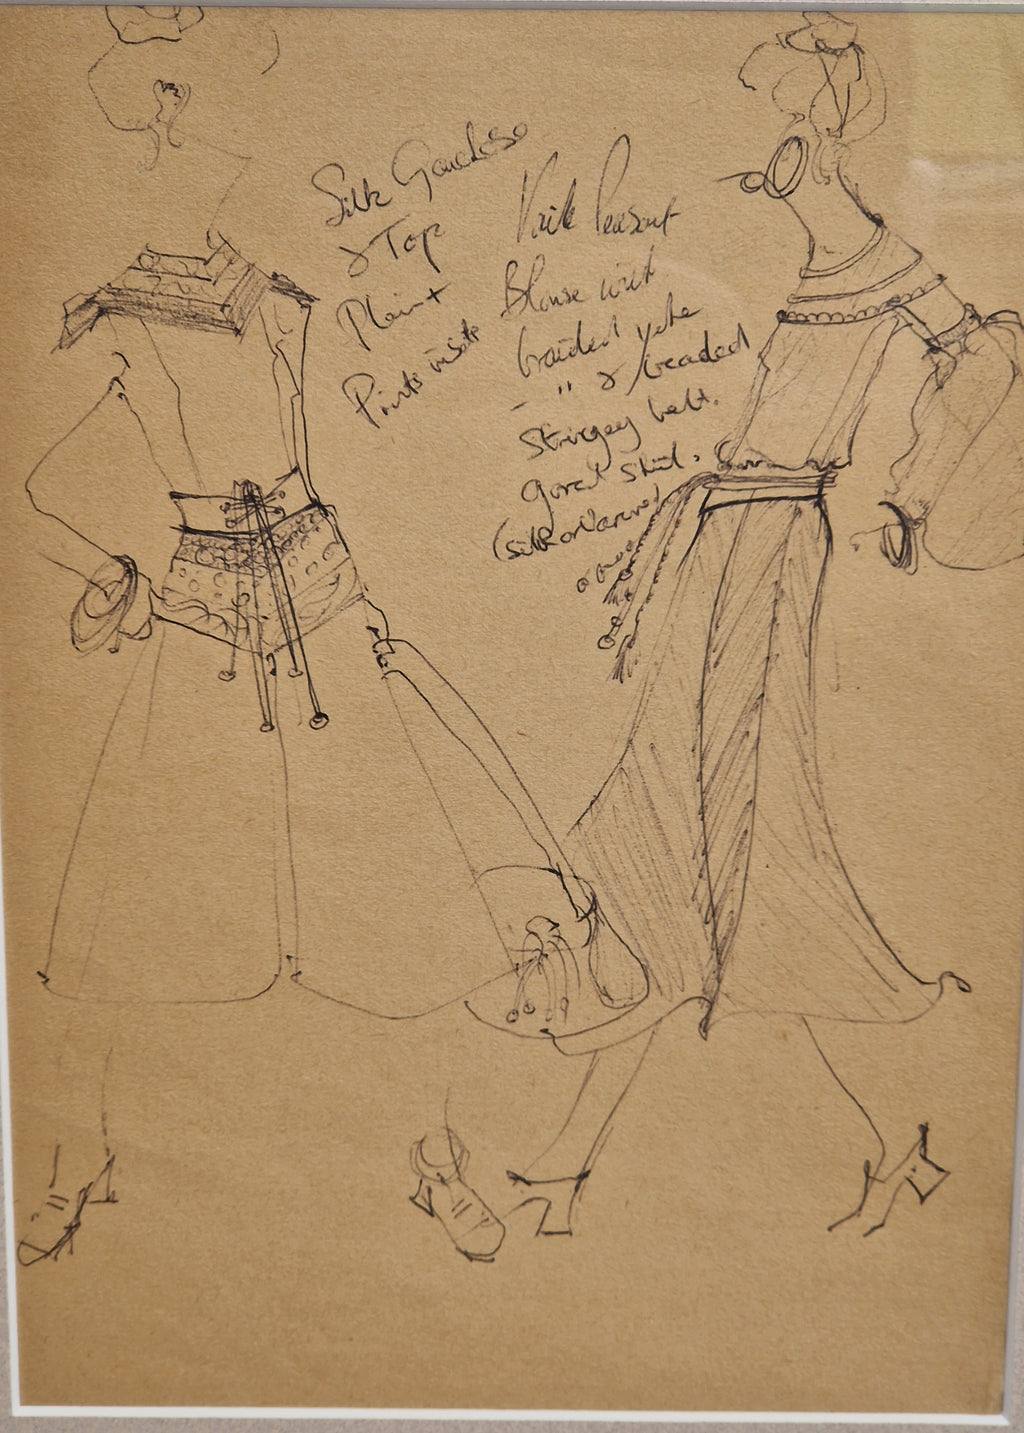 Silk Gauchoso
& Top
Plain +
Prints inset
Voile Peasant
Blouse with
braided yoke
- " & beaded
Stringey belt.
gored skirt.
(silk or